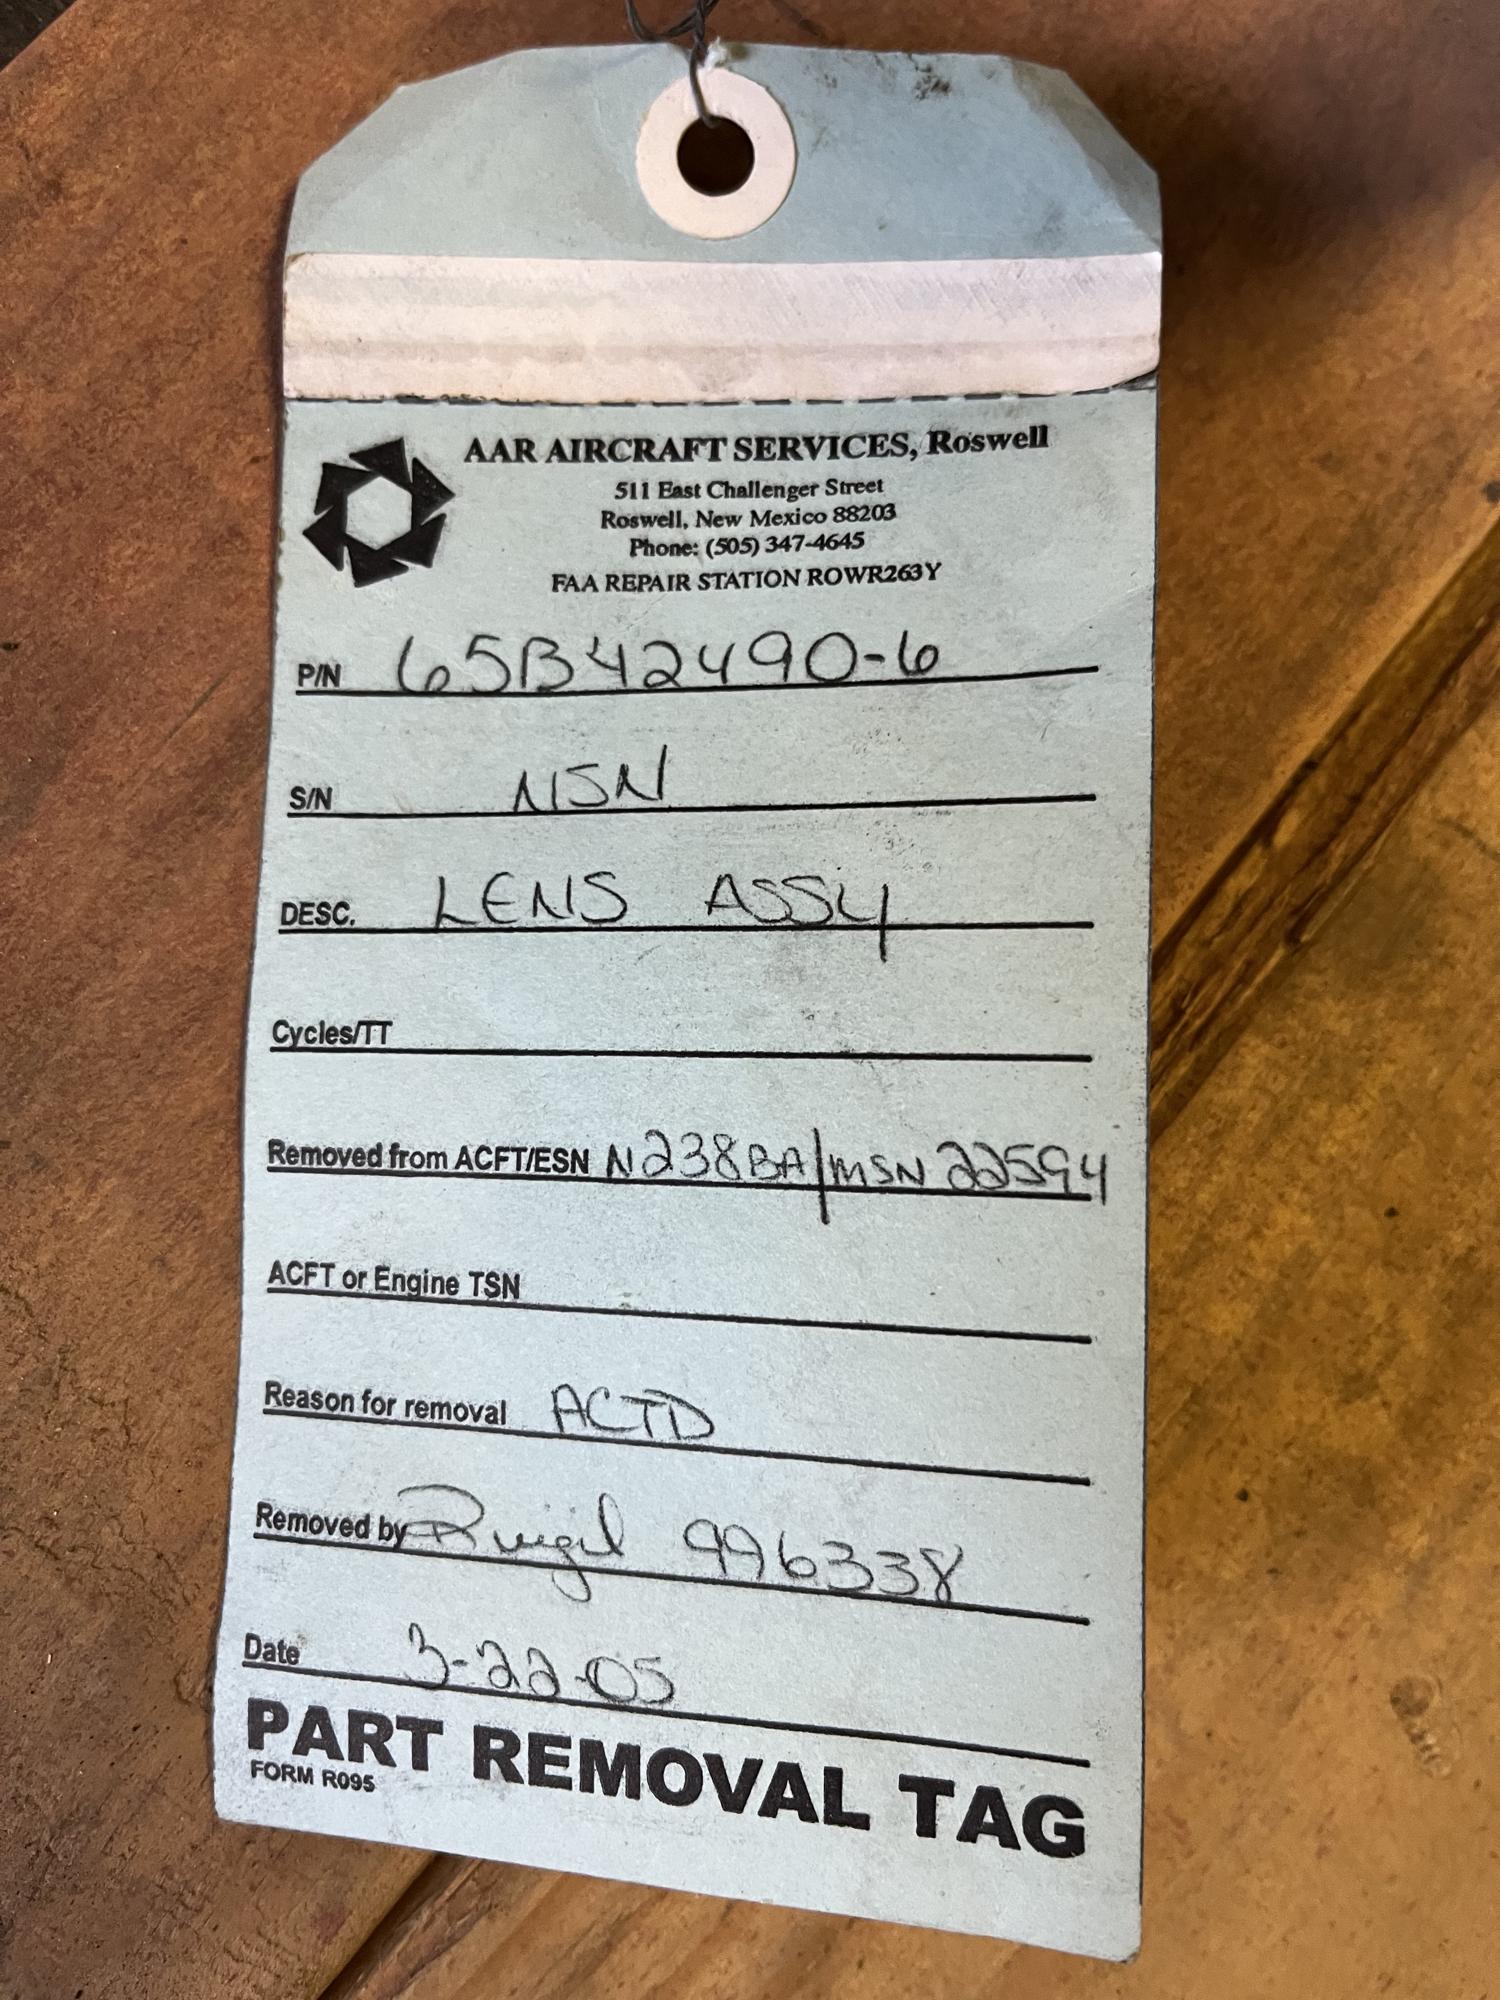 AAR AIRCRAFT SERVICES, Roswell
511 East Challenger Street
Roswell, New Mexico 88203
Phone: (505) 347-4645
FAA REPAIR STATION ROWR263Y
P/N 65B42490-6
S/N NSN
DESC. LENS ASSY
Cycles/TT
Removed from ACFT/ESN N238BA/MSN 22594
ACFT or Engine TSN
Reason for removal ACTD
Removed by 996338
Date 3-22-05
PART REMOVAL TAG
FORM R095